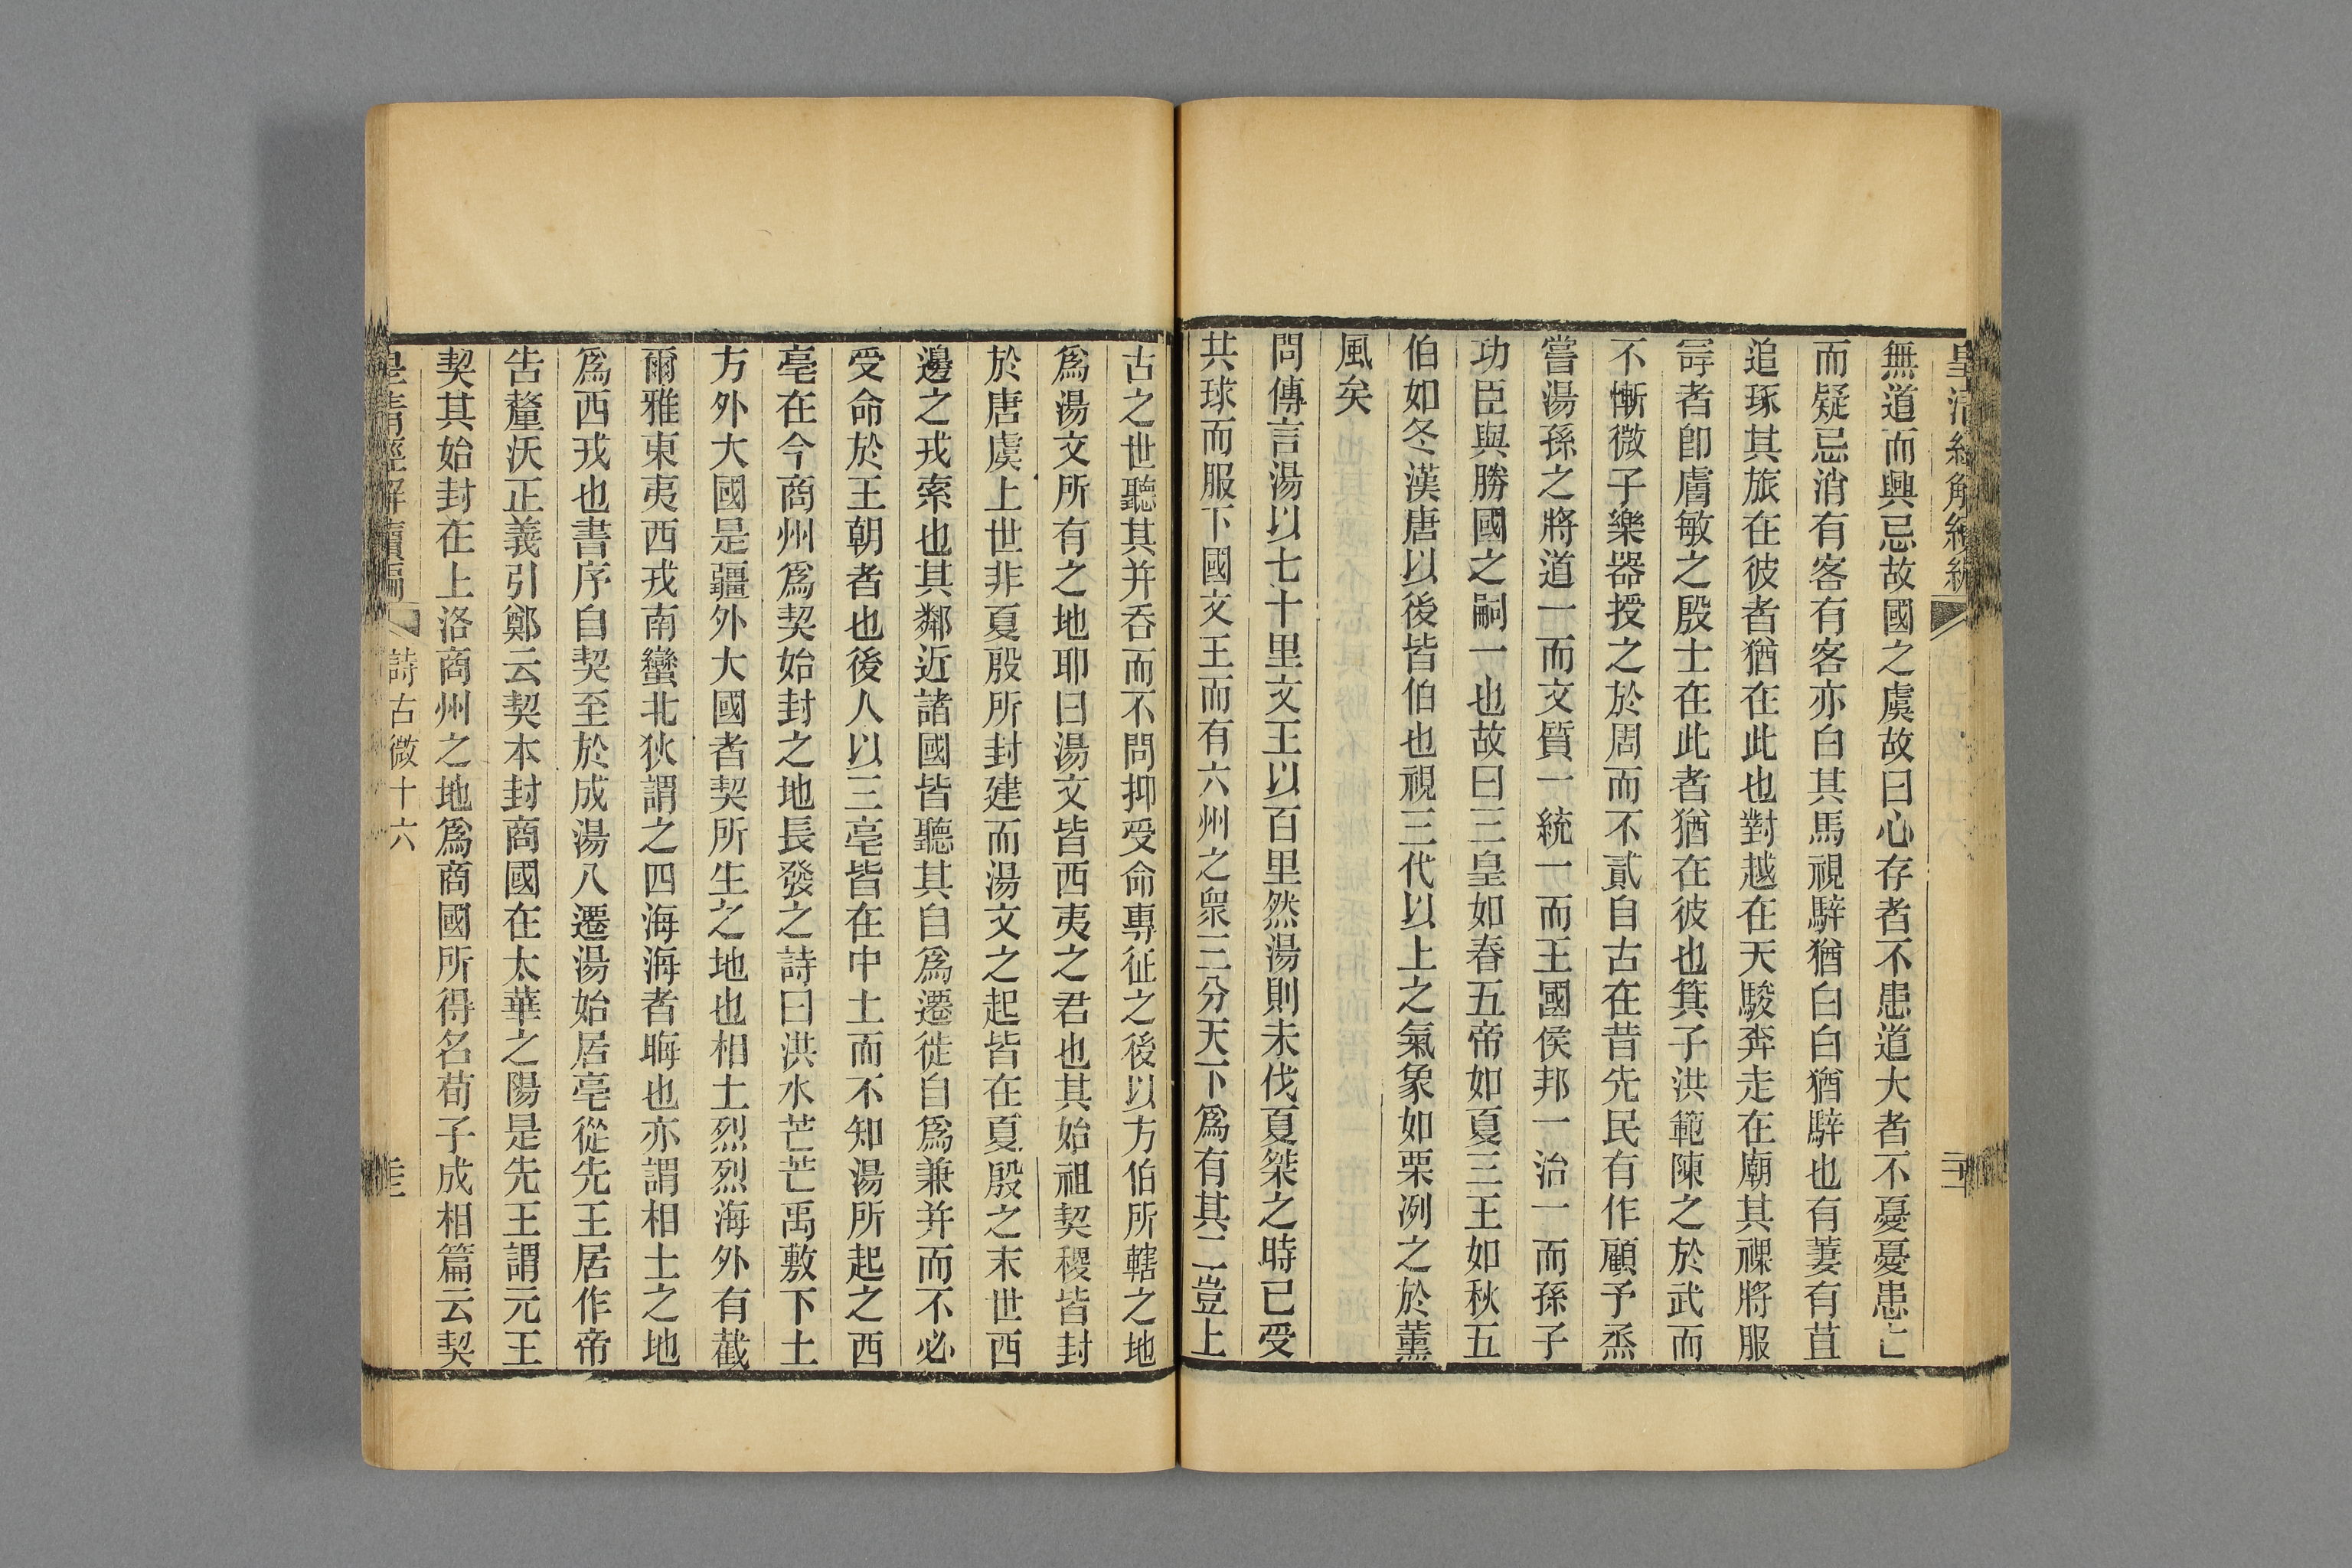 皇清經解續編
無道而興忌故國之虞故曰心存者不患道大者不憂憂患亡
而疑忌消有客有客亦白其馬視騂猶白白猶騂也有萋有苴
追琢其旅在彼者猶在此也對越在天駿奔走在廟其祼將服
冔者卽膚敏之殷士在此者猶在彼也箕子洪範陳之於武而
不慚微子樂器授之於周而不貳自古在昔先民有作顧予烝
嘗湯孫之將道一而文質一統一而王國侯邦一治一而孫子
功臣與勝國之嗣一也故曰三皇如春五帝如夏三王如秋五
伯如冬漢唐以後皆伯也視三代以上之氣象如栗冽之於薰
風矣
問傳言湯以七十里文王以百里然湯則未伐夏桀之時已受
共球而服下國文王而有六州之眾三分天下爲有其二豈上
古之世聽其并吞而不問抑受命專征之後以方伯所轄之地
爲湯文所有之地耶曰湯文皆西夷之君也其始祖契稷皆封
於唐虞上世非夏殷所封建而湯文之起皆在夏殷之末世西
邊之戎索也其鄰近諸國皆聽其自爲遷徙自爲兼并而不必
受命於王朝者也後人以三亳皆在中土而不知湯所起之西
亳在今商州爲契始封之地長發之詩曰洪水芒芒禹敷下土
方外大國是疆外大國者契所生之地也相土烈烈海外有截
爾雅東夷西戎南蠻北狄謂之四海海者晦也亦謂相土之地
爲西戎也書序自契至於成湯八遷湯始居亳從先王居作帝
吿釐沃正義引鄭云契本封商國在太華之陽是先王謂元王
契其始封在上洛商州之地爲商國所得名荀子成相篇云契
皇清經解續編
詩古微十六